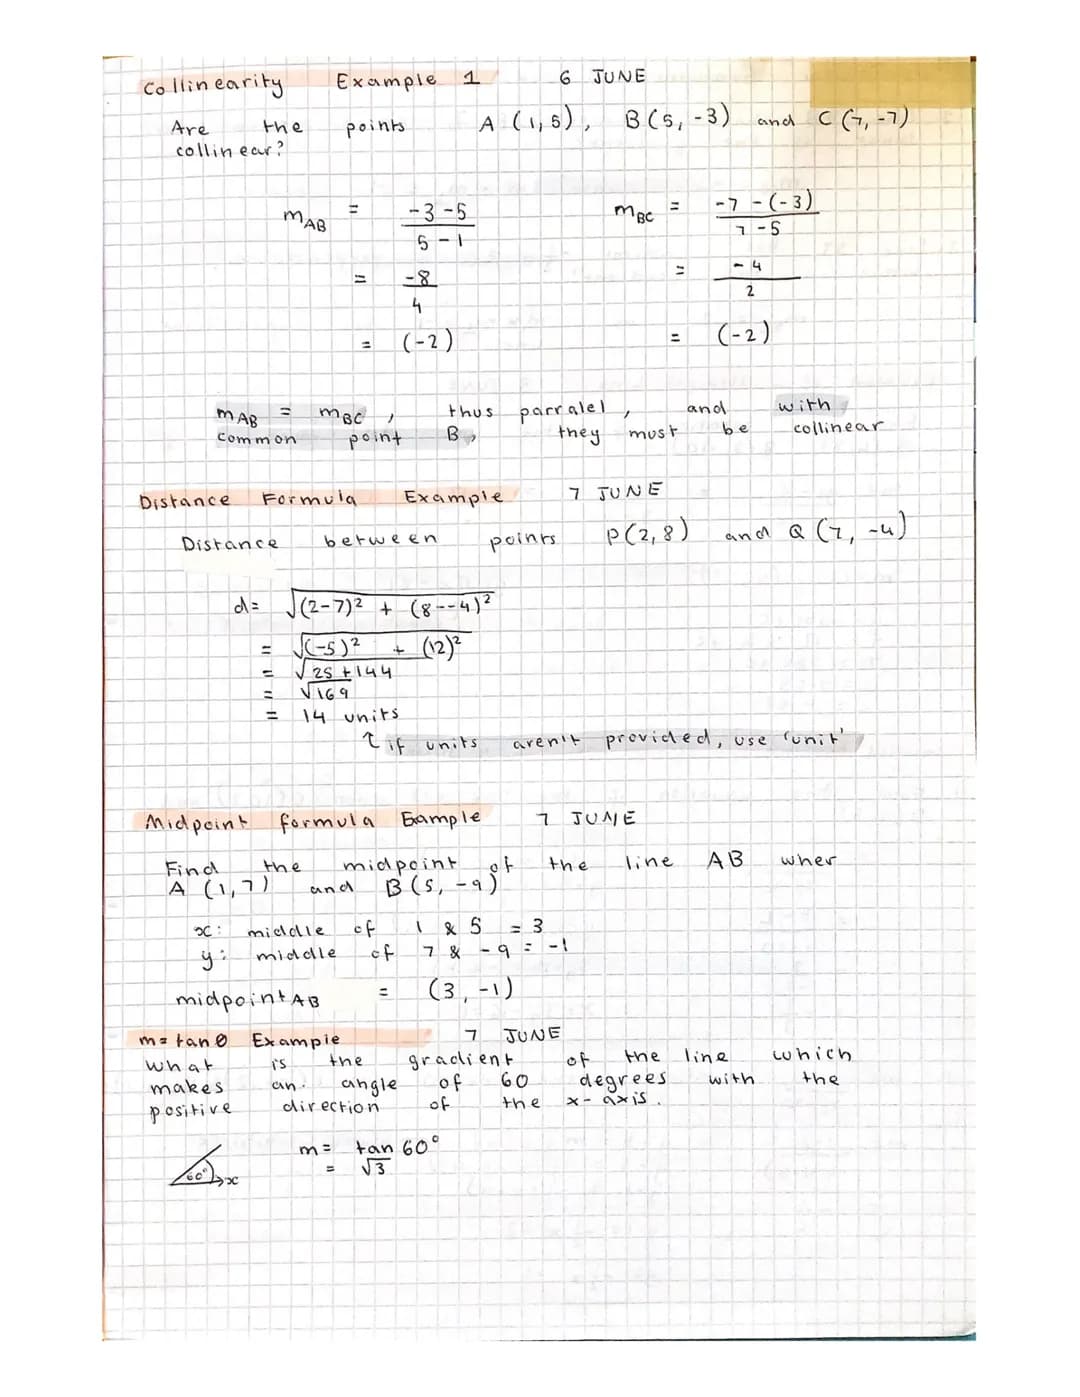 Collinearity Example 1 6 JUNE
Are the points A (1,5), B(5,-3) and C(7,-7)
collinear?
mAB = -3-5 / 5-1 mBC = -7-(-3) / 7-5
= -8 / 4 = -4 / 2
= (-2) = (-2)
mAB = mBC, thus parralel, and with
common point B, they must be collinear
Distance Formula Example 7 JUNE
Distance between points P(2,8) and Q(7,-4)
d= √(2-7)² + (8--4)²
= √(-5)² + (12)²
= √25+144
= √169
= 14 units
↑ if units aren't provided, use 'unit'
Midpoint formula Eample 7 JUNE
Find the midpoint of the line AB wher
A (1,7) and B(5,-9)
x: middle of 1 & 5 = 3
y: middle of 7 & -9 = -1
midpoint AB = (3,-1)
m=tanθ Example 7 JUNE
what is the gradient of the line which
makes an angle of 60 degrees with the
positive direction of the x-axis.
m= tan 60°
= √3
60° x